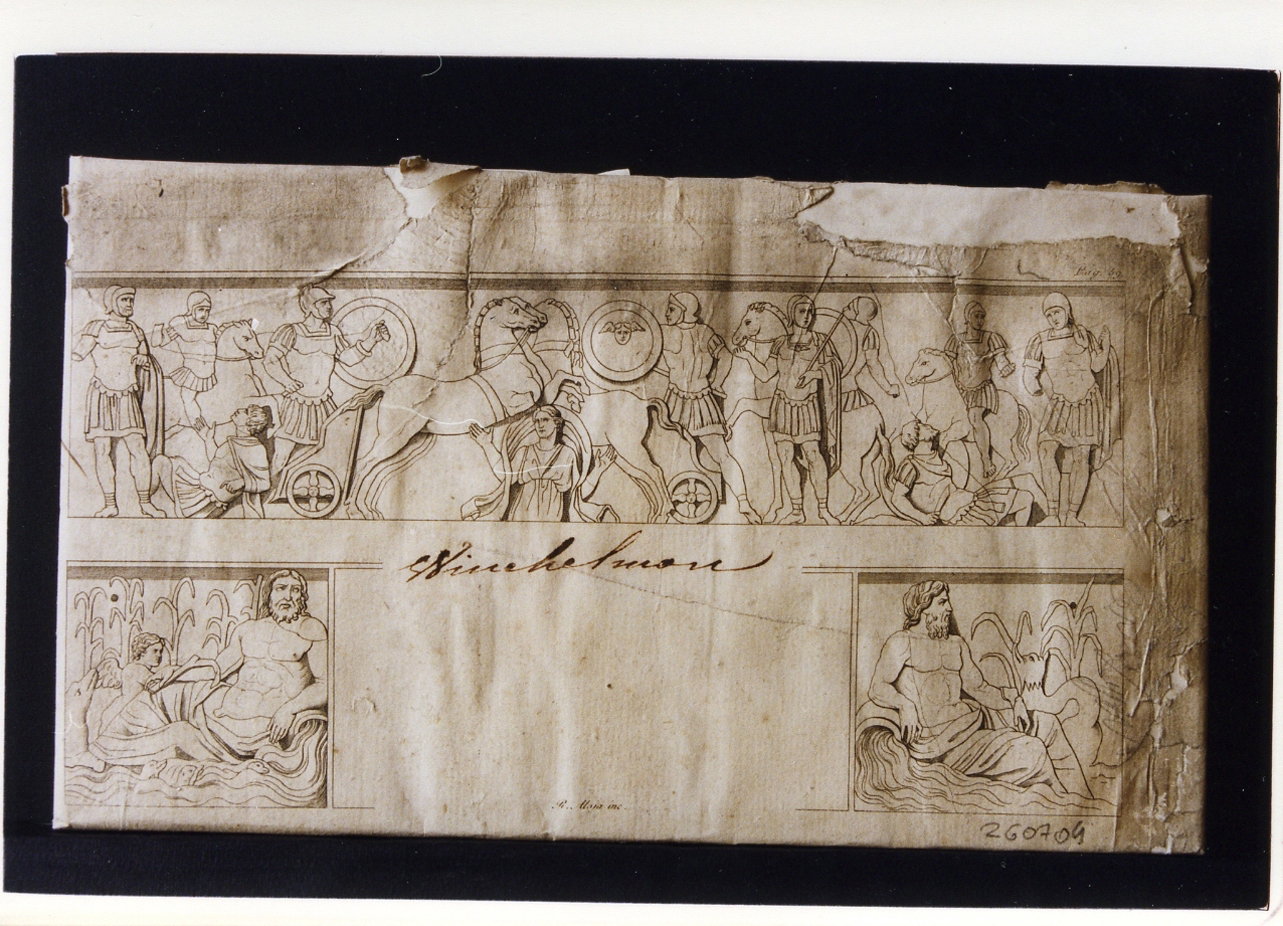 Pag. 59
Winckelmon
R. Aloja inc.
260704